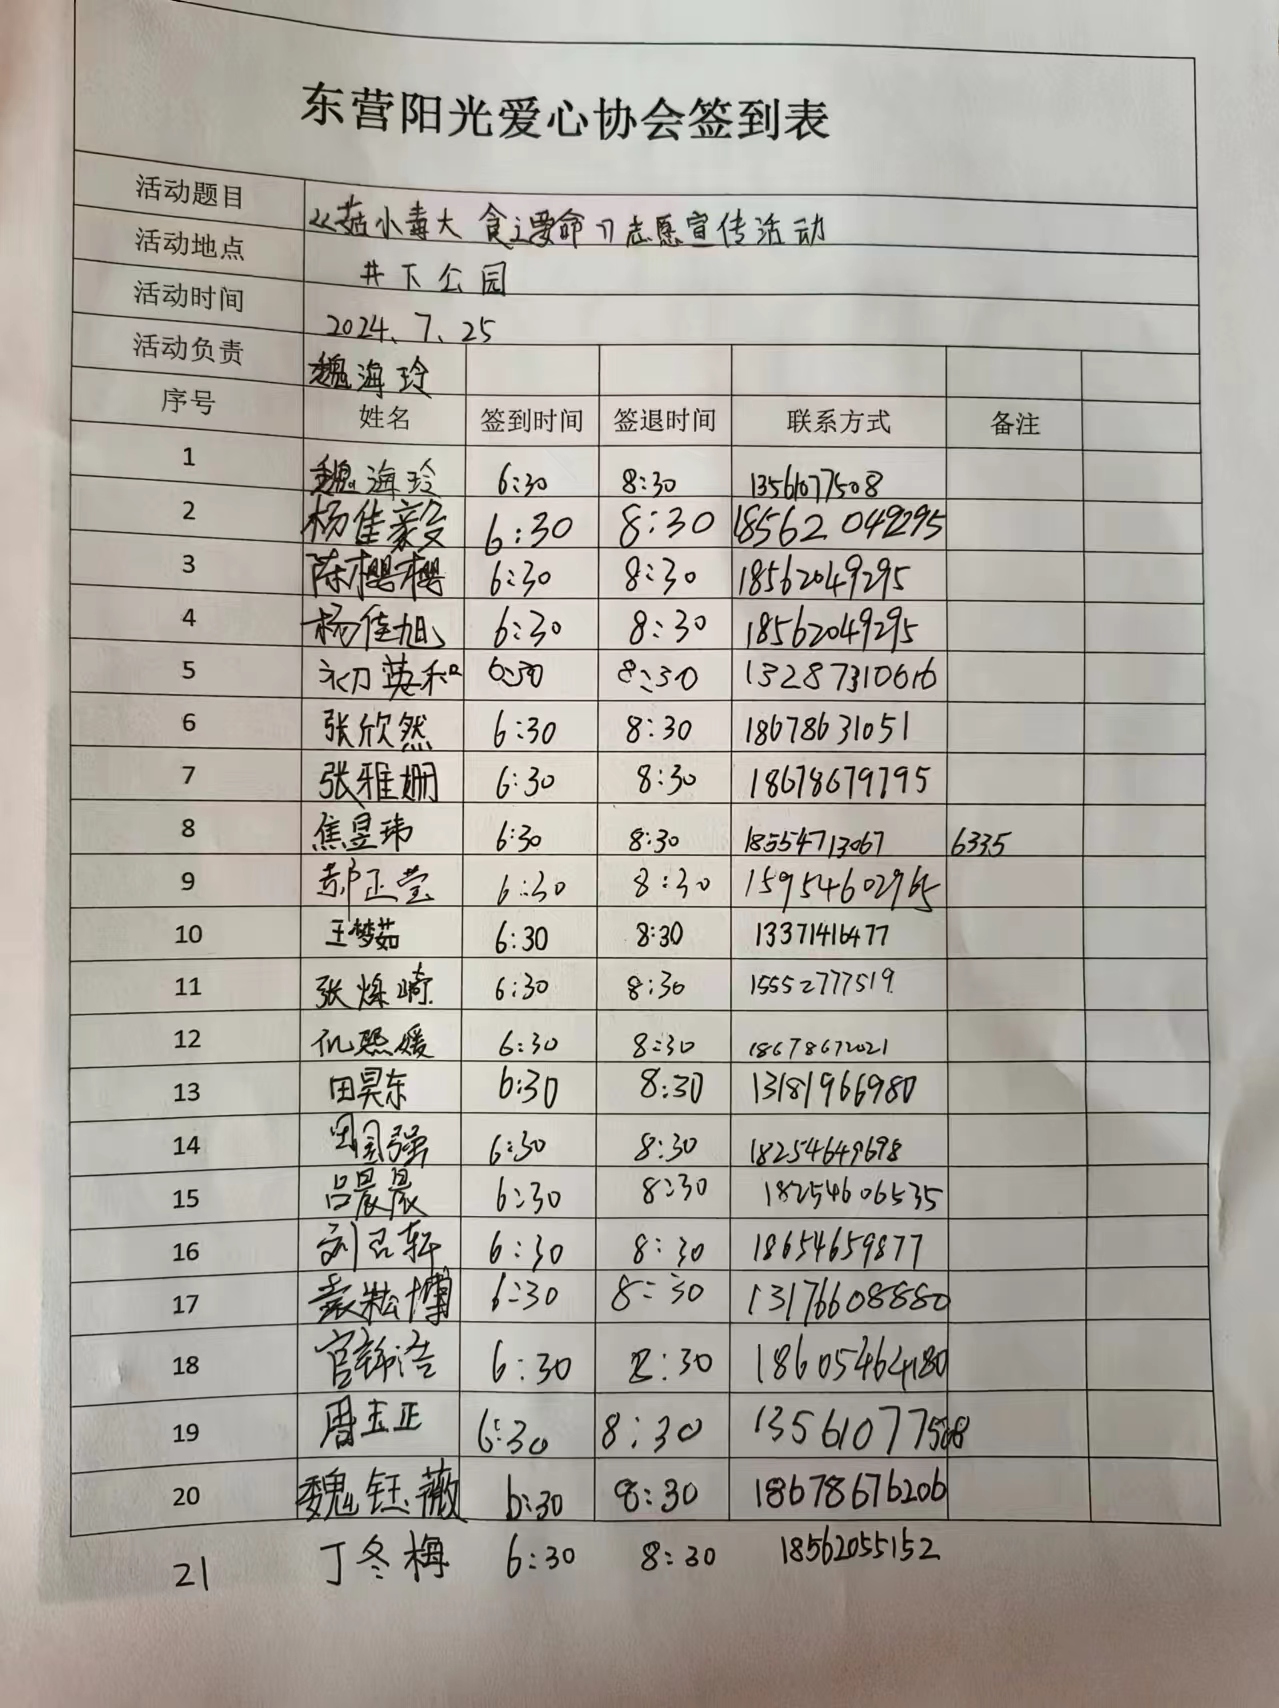 东营阳光爱心协会签到表
活动题目 《菇小毒大 食之要命》志愿宣传活动
活动地点 井下公园
活动时间 2024、7、25
活动负责 魏海玲
序号 姓名 签到时间 签退时间 联系方式 备注
1 魏海玲 6:30 8:30 13561077508
2 杨佳毅 6:30 8:30 18562049295
3 陈樱樱 6:30 8:30 18562049295
4 杨佳旭 6:30 8:30 18562049295
5 英和 6:30 8:30 13287310616
6 张欣然 6:30 8:30 18678631051
7 张雅姗 6:30 8:30 18678679795
8 焦昱玮 6:30 8:30 18554713067 6335
9 郝正莹 6:30 8:30 15954602965
10 王梦茹 6:30 8:30 13371416477
11 张 6:30 8:30 15552777519
12 仉熙媛 6:30 8:30 18678672021
13 田昊东 6:30 8:30 13181966980
14 田国强 6:30 8:30 18254649698
15 吕晨晨 6:30 8:30 18254606535
16 刘名轩 6:30 8:30 18654659877
17 袁崧博 6:30 8:30 13176608880
18 官锦浩 6:30 8:30 18605464180
19 周玉正 6:30 8:30 13561077508
20 魏钰薇 6:30 8:30 18678676206
21 丁冬梅 6:30 8:30 18562055152